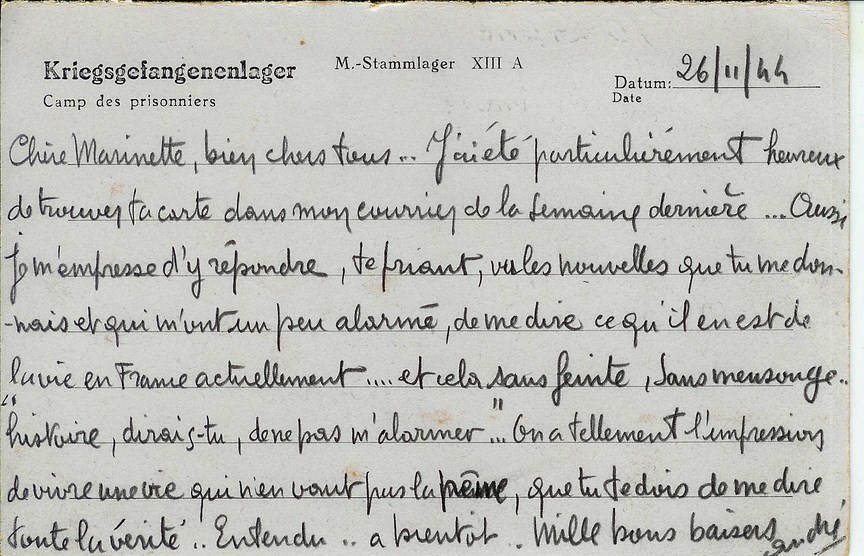 Kriegsgefangenenlager M.-Stammlager XIII A
Camp des prisonniers
Datum: 26/11/44
Date
Chère Marinette, bien chers tous... J'ai été particulièrement heureux
de trouver ta carte dans mon courrier de la semaine dernière ... Aussi
je m'empresse d'y répondre, te priant, vu les nouvelles que tu me don-
-nais et qui m'ont un peu alarmé, de me dire ce qu'il en est de
la vie en France actuellement .... et cela sans feinte, sans mensonge..
"histoire, dirais-tu, de ne pas m'alarmer"... On a tellement l'impression
de vivre une vie qui n'en vaut pas la peine, que tu te dois de me dire
toute la vérité .. Entendu .. a bientôt . Mille bons baisers
andré